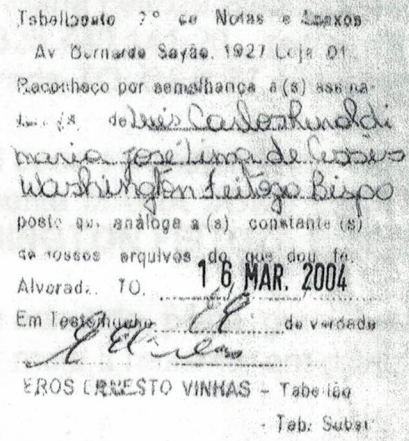 Tabelionato 2º de Notas e Anexos
Av Bernardo Sayão, 1927 Loja 01
Reconheço por semelhança a(s) assina-
de Luis Carlos Rinaldi
maria José Lima de
Washington Feitoza Bispo
posto que análoga a(s) constante(s)
de nossos arquivos do que dou fé.
Alvorada, TO, 16 MAR. 2004
Em Testemunho da verdade
EROS ERNESTO VINHAS - Tabelião
- Tab. Subst